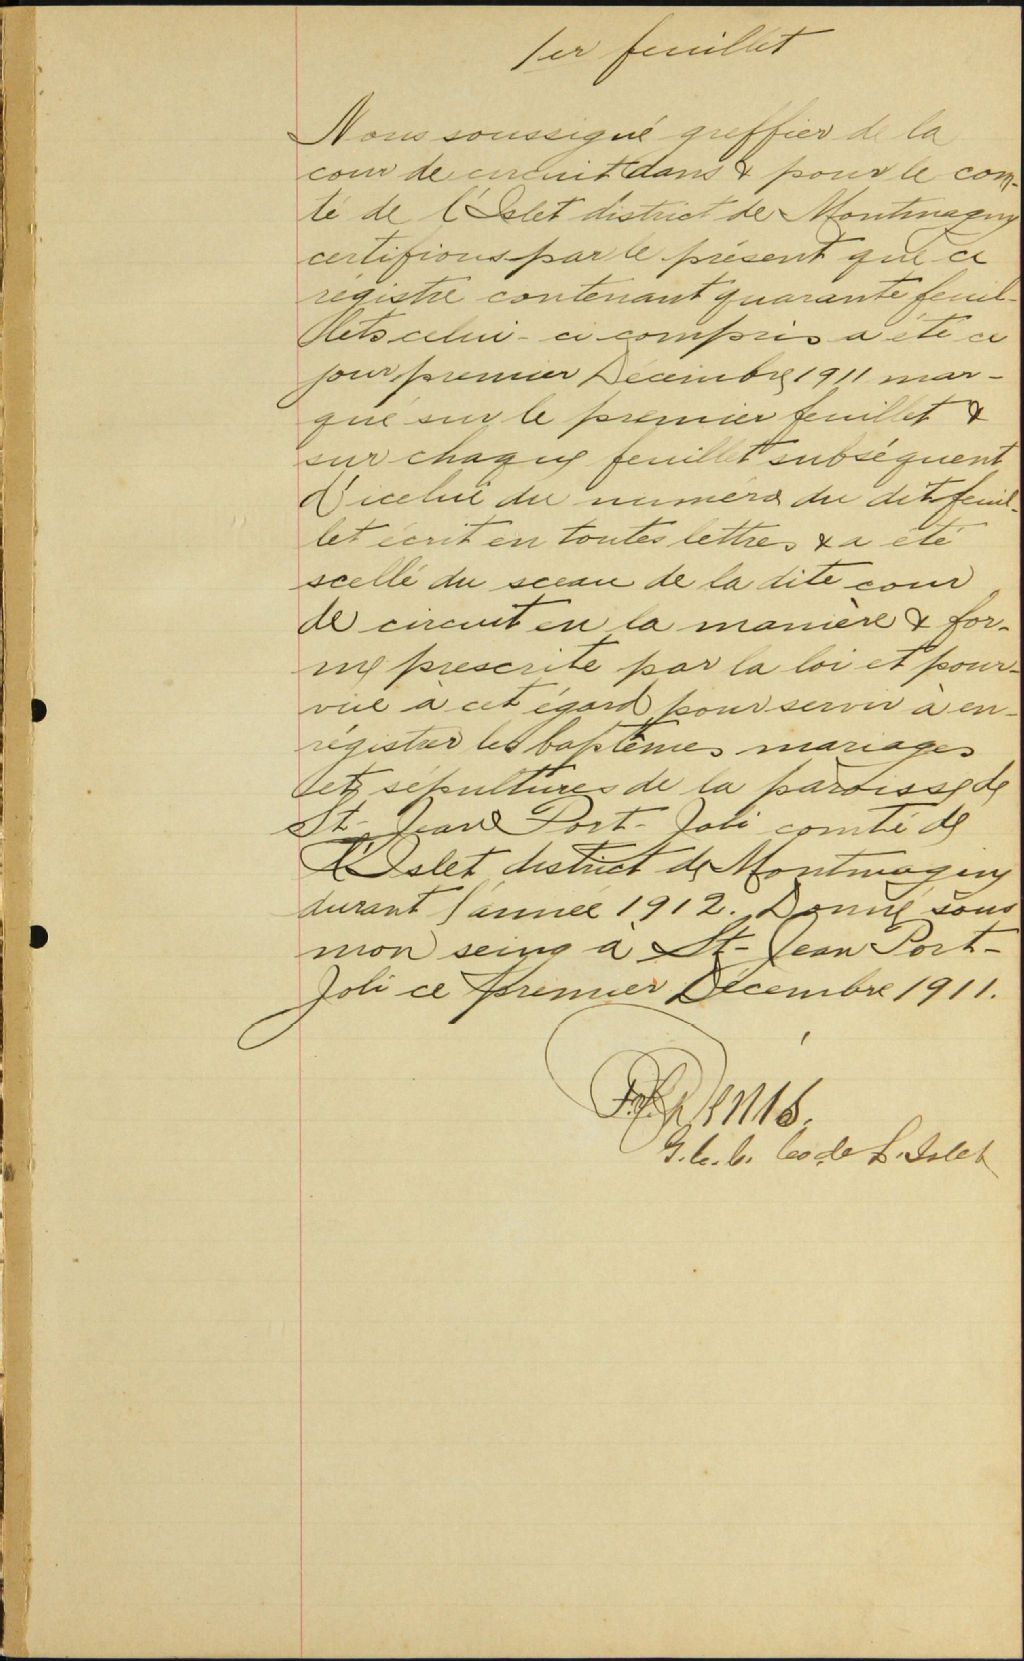 1er feuillet
Nous soussigné greffier de la
cour de circuit dans & pour le com-
té de l'Islet district de Montmagny
certifions par le présent que ce
régistre contenant quarante feuil-
lets celui-ci compris a été ce
jour premier Décembre 1911 mar-
qué sur le premier feuillet &
sur chaque feuillet subséquent
d'icelui du numéro du dit feuil-
let écrit en toutes lettres & a été
scellé du sceau de la dite cour
de circuit en la manière & for-
me prescrite par la loi et pour-
vue à cet égard pour servir à en-
régistrer les baptêmes mariages
et sépultures de la paroisse de
St-Jean Port-Joli comté de
l'Islet district de Montmagny
durant l'année 1912. Donné sous
mon seing à St-Jean Port-
Joli ce premier Décembre 1911.
Denis.
G.C.C. Co. de L'Islet